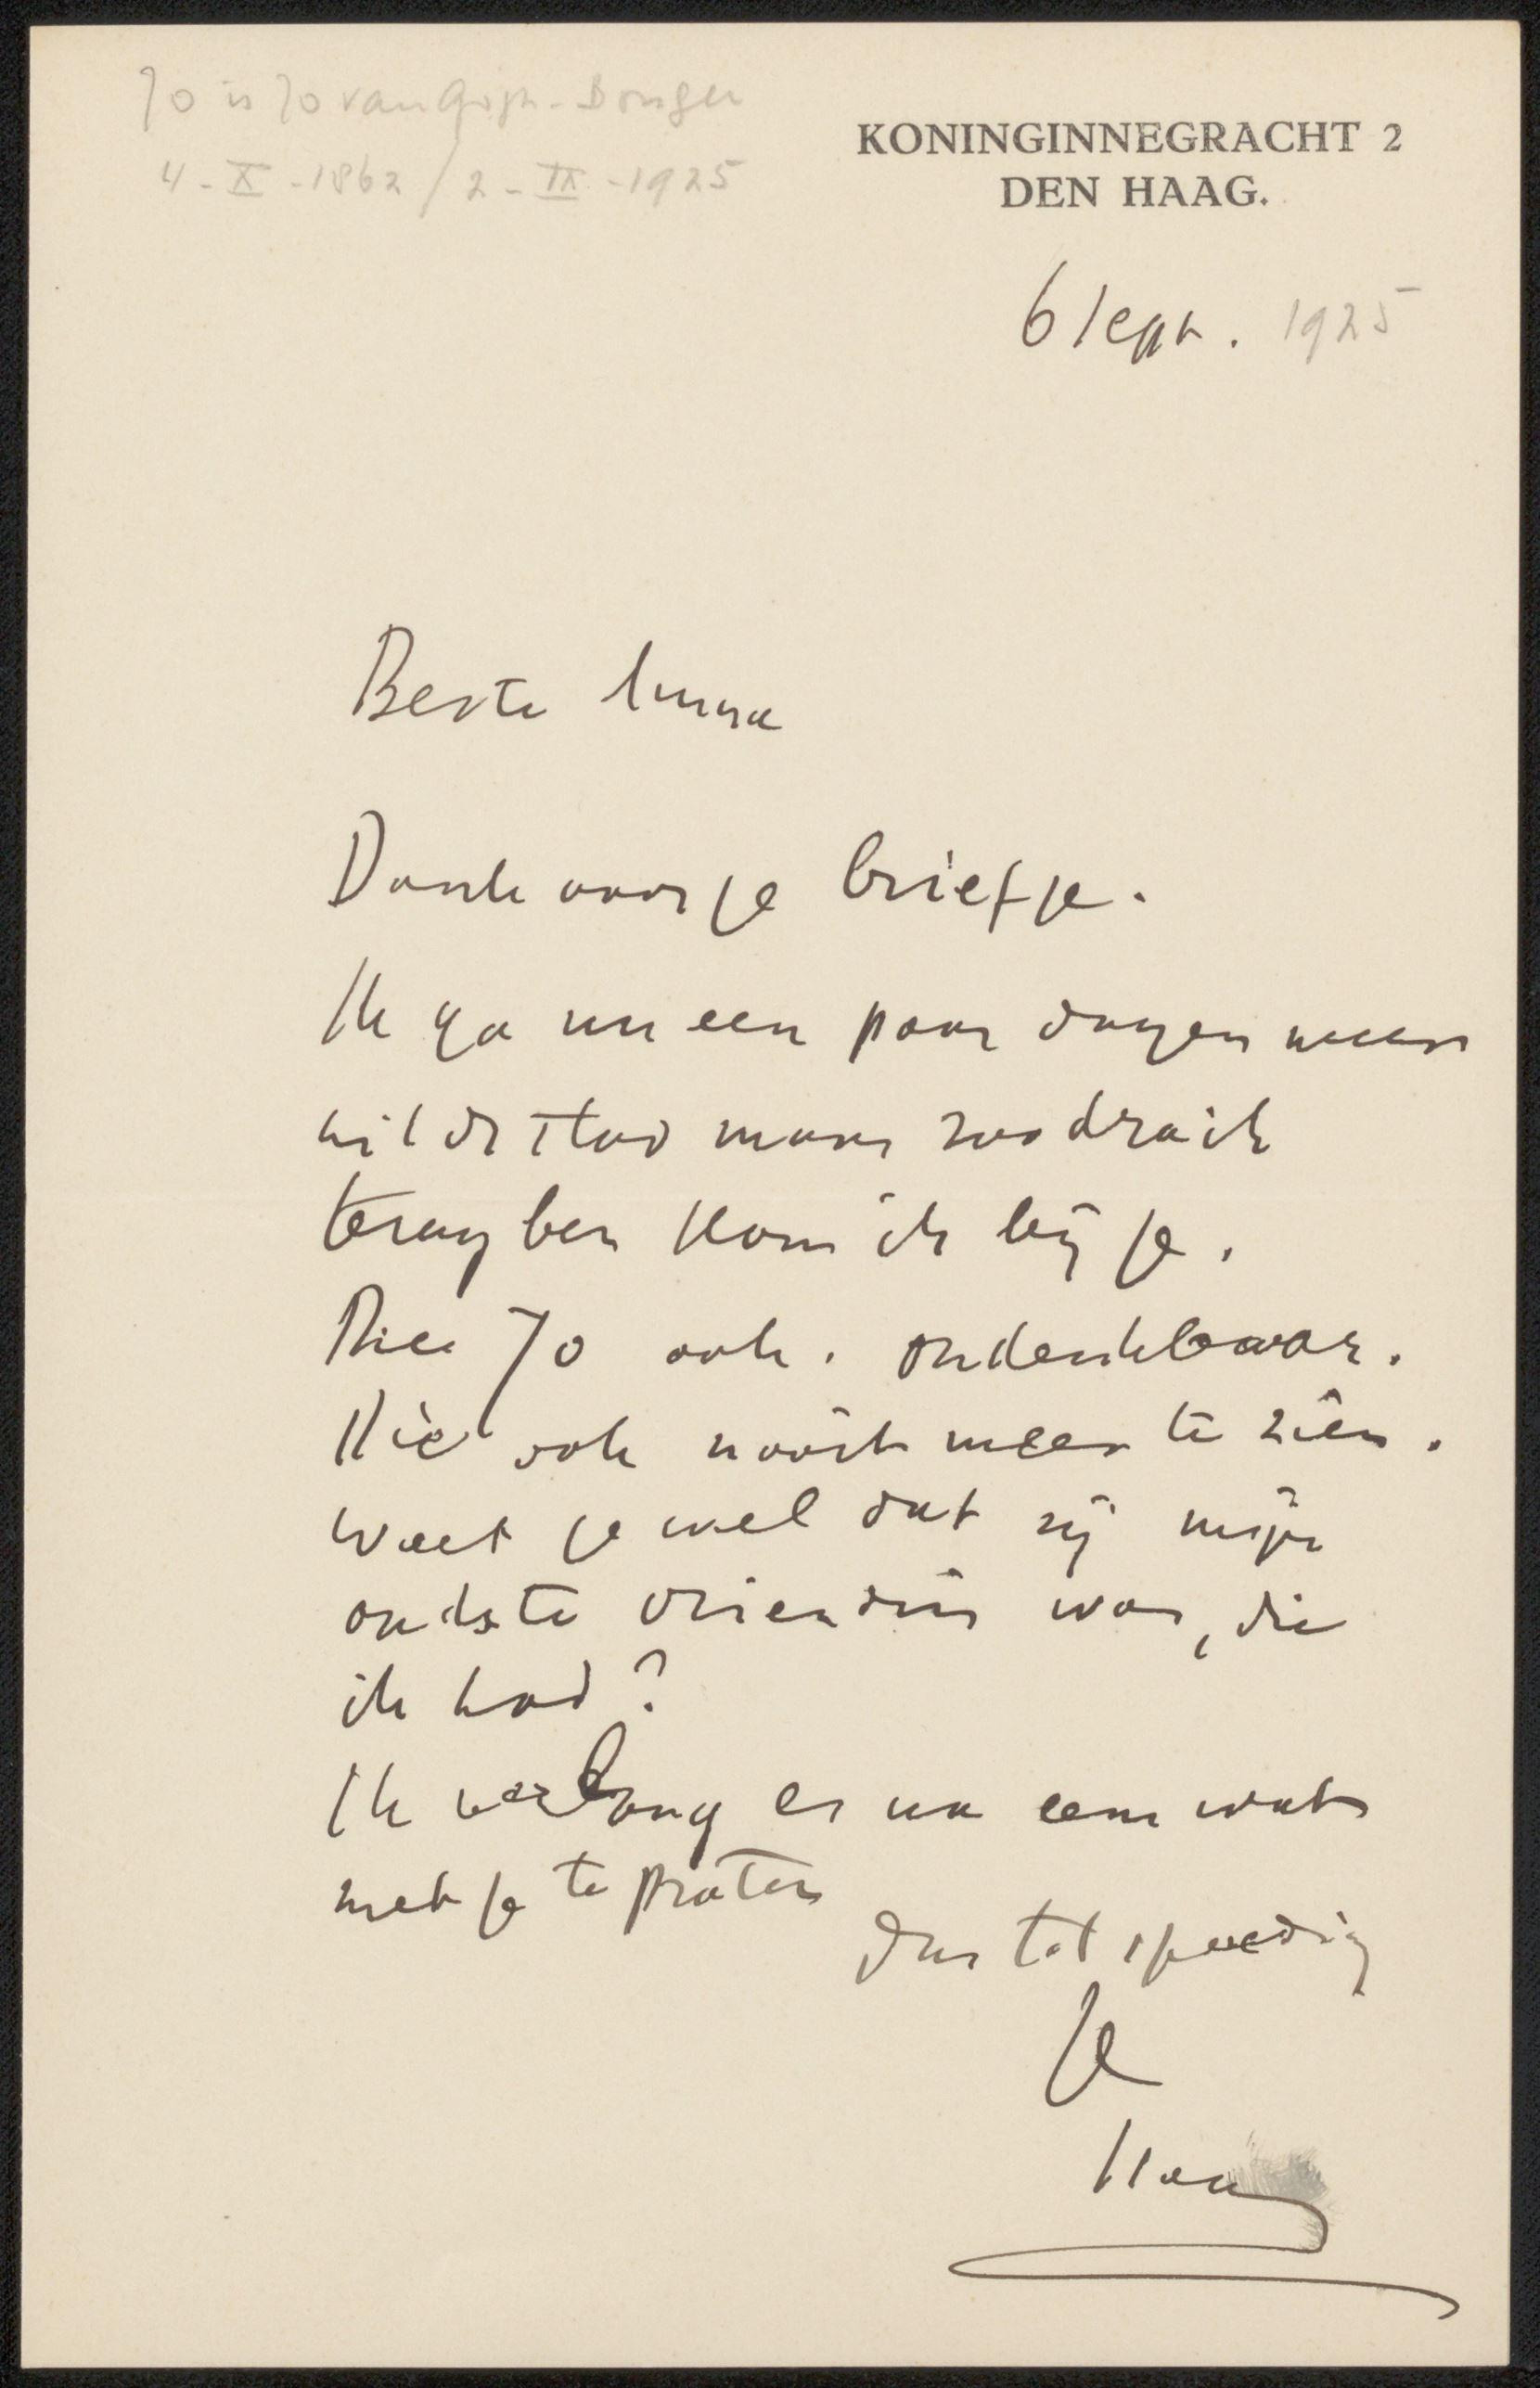 Jo is Jo van Gogh-Bonger
4-X-1862 / 2-IX-1925
KONINGINNEGRACHT 2
DEN HAAG.
6 Sept. 1925
Beste Anna
Dank voor je briefje.
Ik ga nu een paar dagen weer
uit de stad maar zoodra ik
terug ben kom ik bij je.
Die Jo ook. ondenkbaar.
Die ook nooit meer te zien.
Weet je wel dat zij mijn
oudste vriendin was, die
ik had?
Ik verlang er na eens wat
met je te praten
Dus tot spoedig
Je